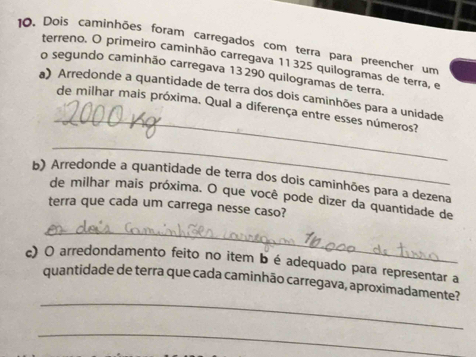 10. Dois caminhões foram carregados com terra para preencher um
terreno. O primeiro caminhão carregava 11 325 quilogramas de terra, e
o segundo caminhão carregava 13 290 quilogramas de terra.
a) Arredonde a quantidade de terra dos dois caminhões para a unidade
de milhar mais próxima. Qual a diferença entre esses números?
2000 Kg
b) Arredonde a quantidade de terra dos dois caminhões para a dezena
de milhar mais próxima. O que você pode dizer da quantidade de
terra que cada um carrega nesse caso?
dois caminhões carregam 10.000 de terra
c) O arredondamento feito no item b é adequado para representar a
quantidade de terra que cada caminhão carregava, aproximadamente?